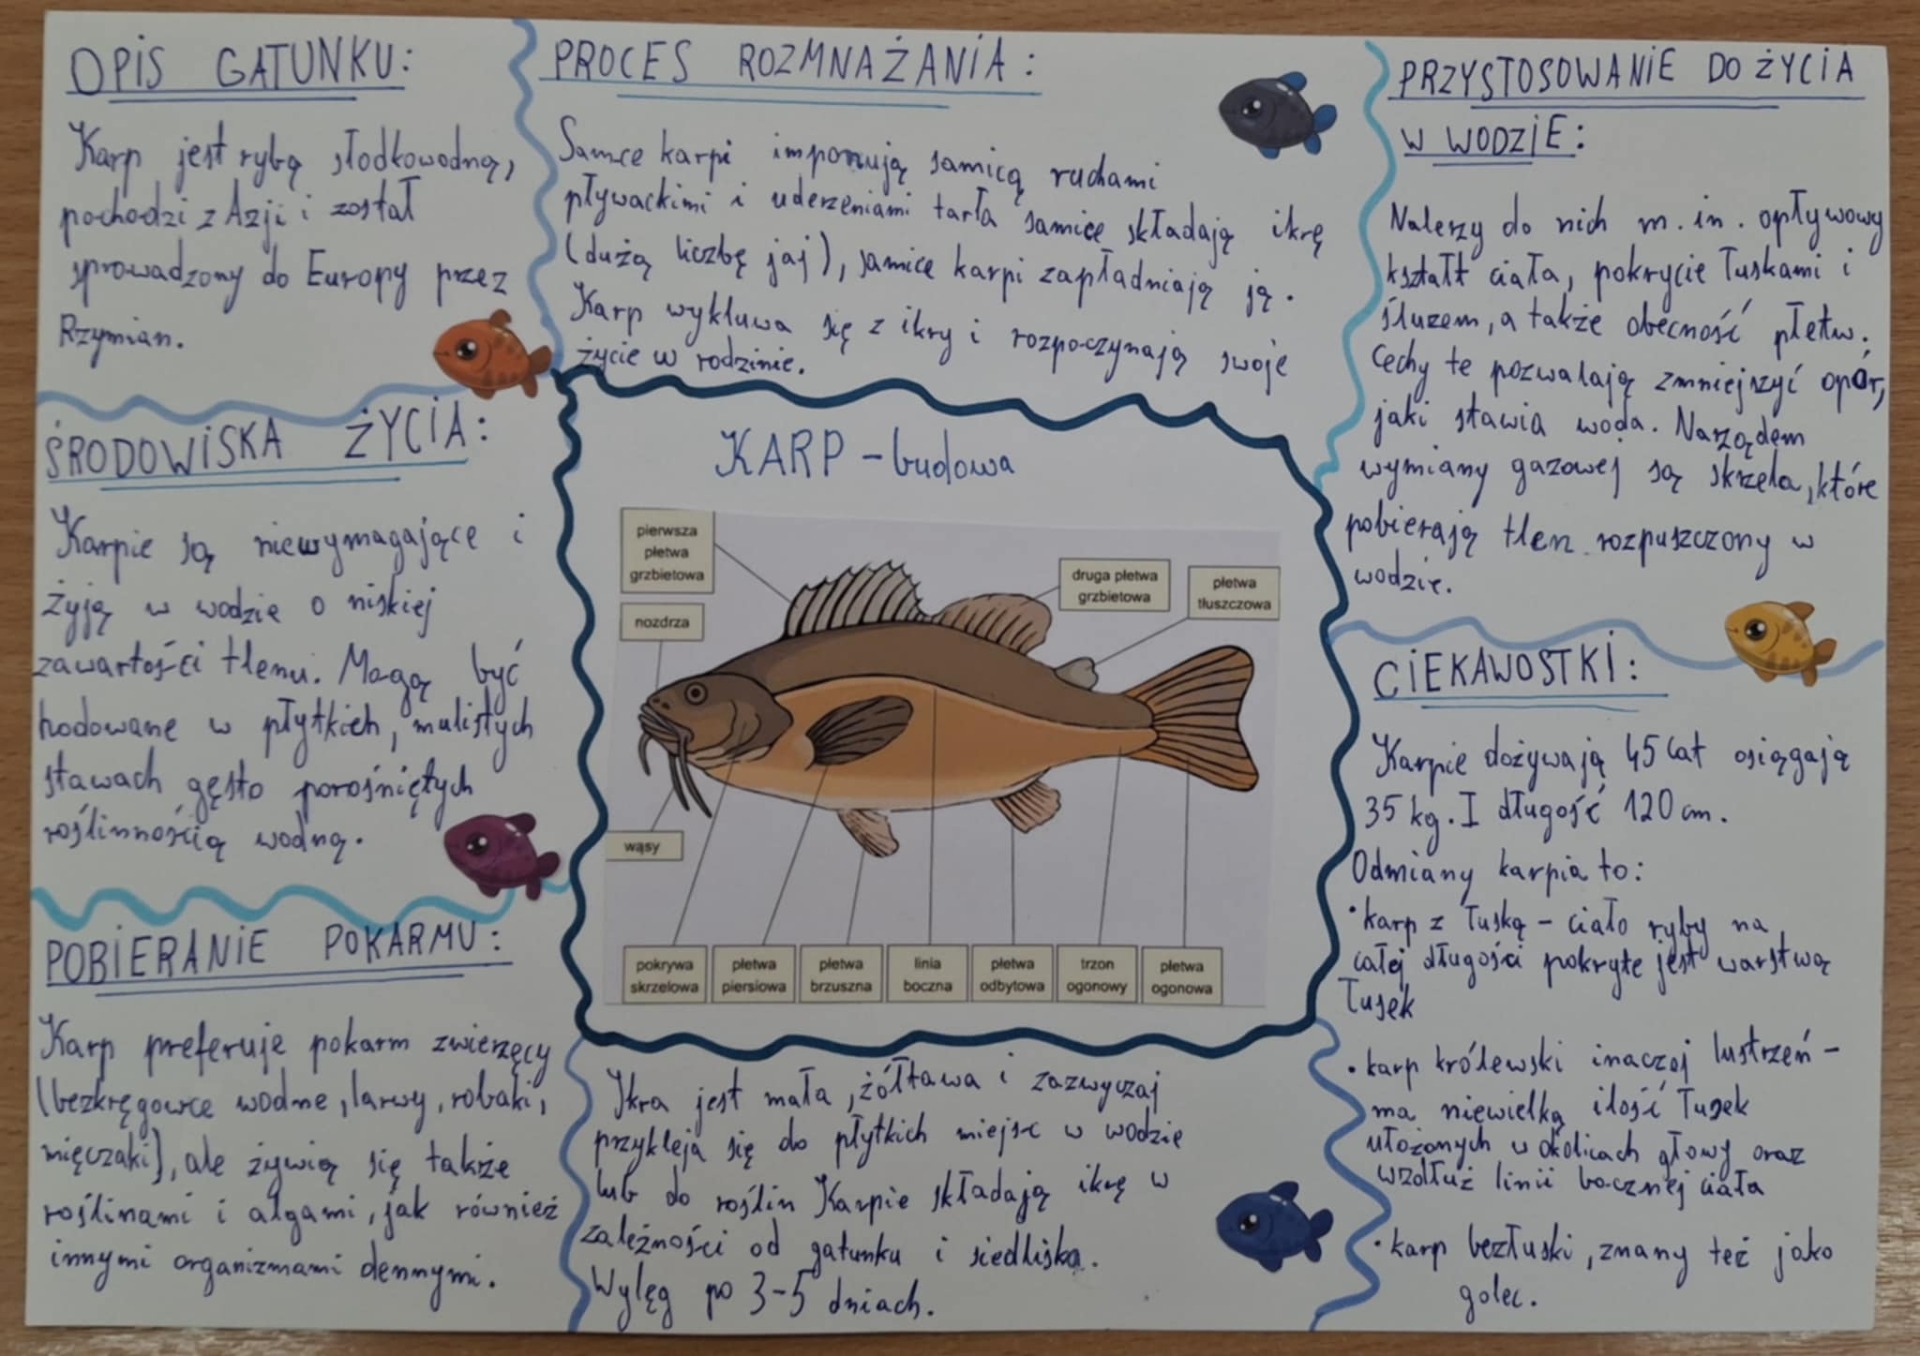 OPIS GATUNKU:
Karp jest rybą słodkowodną,
pochodzi z Azji i został
sprowadzony do Europy przez
Rzymian.
ŚRODOWISKA ŻYCIA:
Karpie są niewymagające i
żyją w wodzie o niskiej
zawartości tlenu. Mogą być
hodowane w płytkich, mulistych
stawach gęsto porośniętych
roślinnością wodną.
POBIERANIE POKARMU:
Karp preferuje pokarm zwierzęcy
(bezkręgowce wodne, larwy, robaki,
mięczaki), ale żywią się także
roślinami i algami, jak również
innymi organizmami dennymi.
PROCES ROZMNAŻANIA:
Samce karpi imponują samicą ruchami
pływackimi i uderzeniami tarła samice składają ikrę
(dużą liczbę jaj), samice karpi zapładniają ją.
Karp wykluwa się z ikry i rozpoczynają swoje
życie w rodzinie.
KARP - budowa
pierwsza
płetwa
grzbietowa
nozdrza
druga płetwa
grzbietowa
płetwa
tłuszczowa
wąsy
pokrywa
skrzelowa
płetwa
piersiowa
płetwa
brzuszna
linia
boczna
płetwa
odbytowa
trzon
ogonowy
płetwa
ogonowa
Ikra jest mała, żółtawa i zazwyczaj
przykleja się do płytkich miejsc w wodzie
lub do roślin Karpie składają ikrę w
zależności od gatunku i siedliska.
Wylęg po 3-5 dniach.
PRZYSTOSOWANIE DO ŻYCIA
W WODZIE:
Należy do nich m. in. opływowy
kształt ciała, pokrycie łuskami i
śluzem, a także obecność płetw.
Cechy te pozwalają zmniejszyć opór,
jaki stawia woda. Narządem
wymiany gazowej są skrzela, które
pobierają tlen rozpuszczony w
wodzie.
CIEKAWOSTKI:
Karpie dożywają 45 lat osiągają
35 kg. I długość 120 cm.
Odmiany karpia to:
• karp z łuską - ciało ryby na
całej długości pokryte jest warstwą
łusek
• karp królewski inaczej lustrzeń -
ma niewielką ilość łusek
ułożonych w okolicach głowy oraz
wzdłuż linii bocznej ciała
• karp bezłuski, znany też jako
golec.